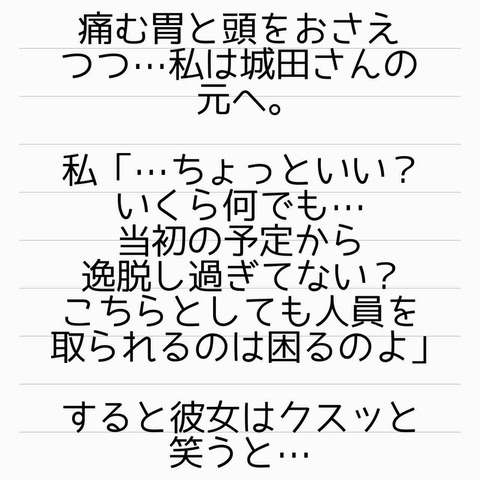 痛む胃と頭をおさえ
つつ…私は城田さんの
元へ。
私「…ちょっといい？
いくら何でも…
当初の予定から
逸脱し過ぎてない？
こちらとしても人員を
取られるのは困るのよ」
すると彼女はクスッと
笑うと…